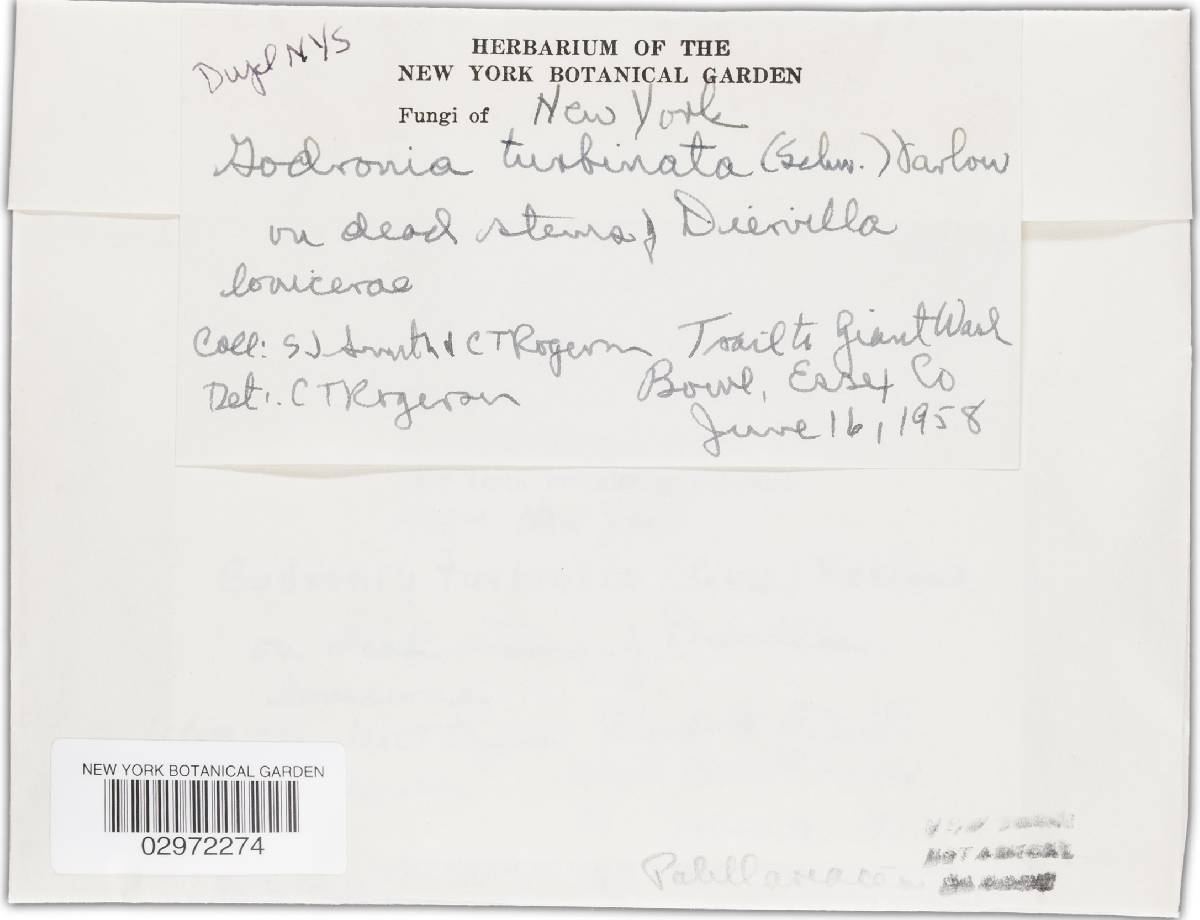 Dupl NYS
HERBARIUM OF THE
NEW YORK BOTANICAL GARDEN
Fungi of New York
Godronia turbinata (Schw.) Varlow
on dead stems of Diervilla
lonicerae
Coll: S J Smith & C T Rogerson Trail to Giant Wash
Bowl, Essex Co
Det: C T Rogerson
June 16, 1958
NEW YORK BOTANICAL GARDEN
02972274
NEW YORK
BOTANICAL
GARDEN